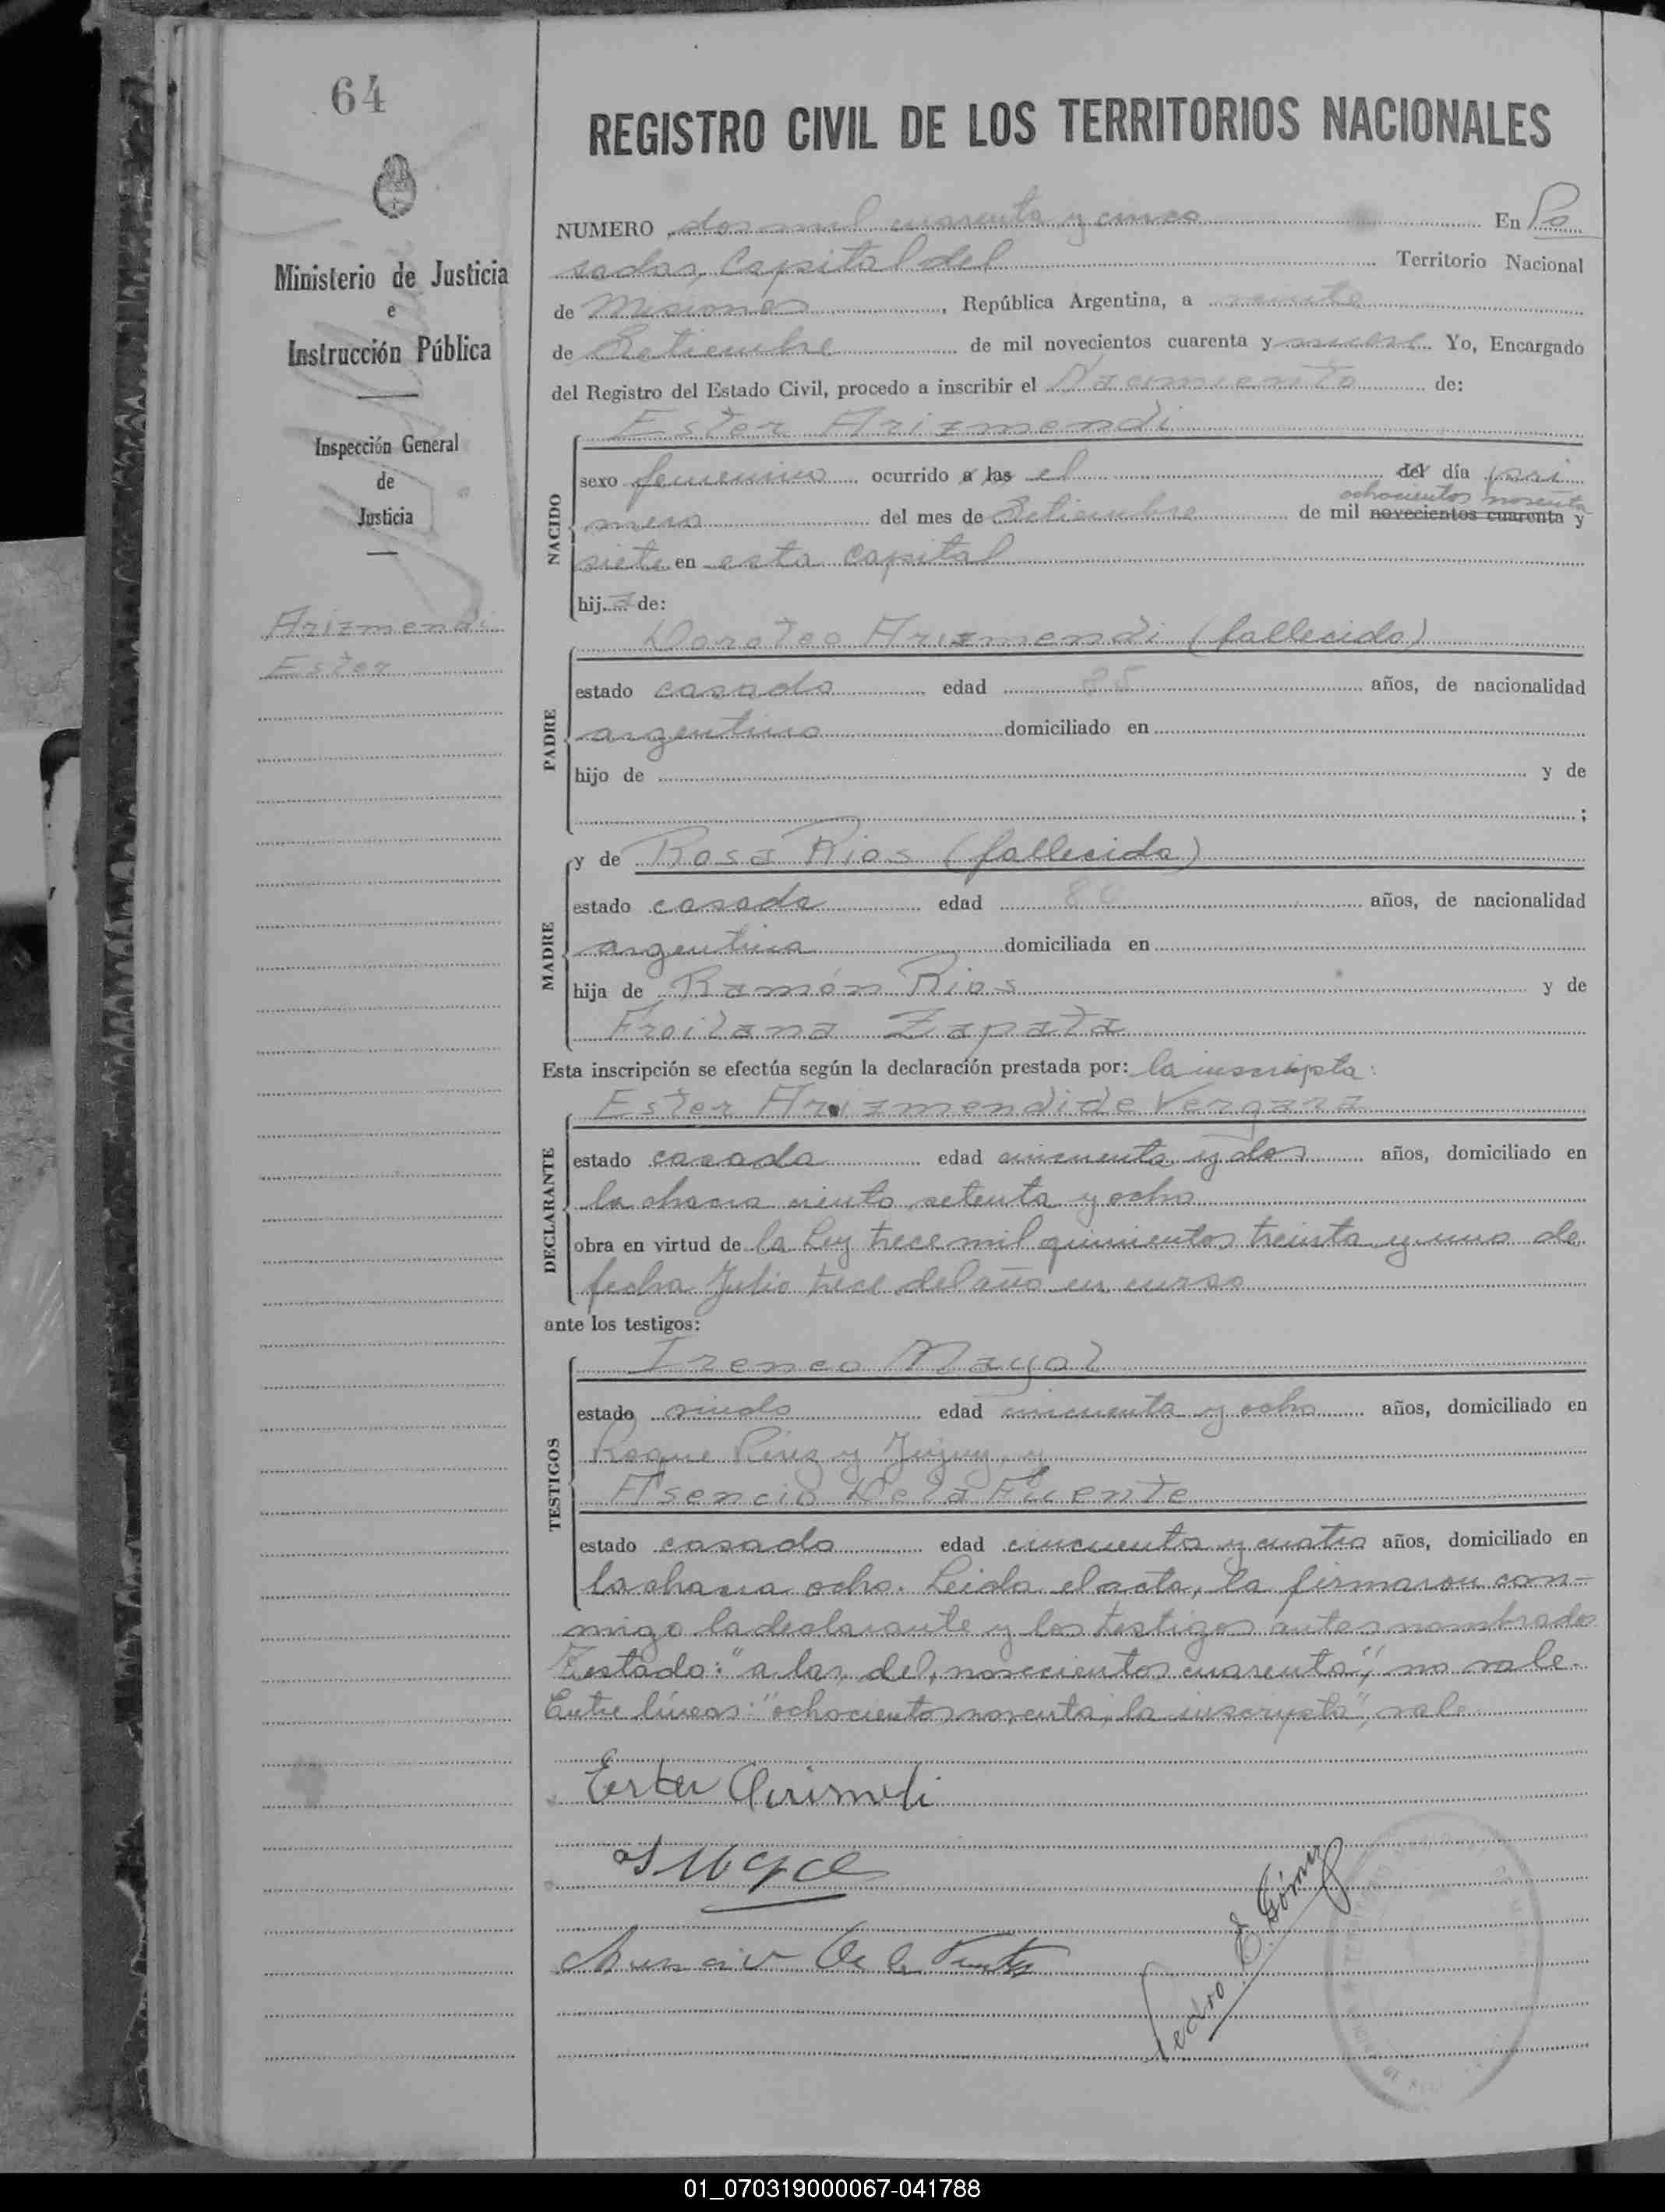 64
Ministerio de Justicia
e
Instrucción Pública
Inspección General
de
Justicia
Arizmendi
Ester
REGISTRO CIVIL DE LOS TERRITORIOS NACIONALES
NUMERO dos mil cuarenta y cinco En Po
sadas, Capital del Territorio Nacional
de Misiones, República Argentina, a veinte
de Setiembre de mil novecientos cuarenta y nueve Yo, Encargado
del Registro del Estado Civil, procedo a inscribir el Nacimiento de:
Ester Arizmendi
NACIDO
sexo femenino ocurrido a las el del día pri
ochocientos noventa
mero del mes de Setiembre de mil novecientos cuarenta y
siete en esta capital
hija de:
Doroteo Arizmendi (fallecido)
PADRE
estado casado edad 85 años, de nacionalidad
argentino domiciliado en
hijo de y de
;
MADRE
y de Rosa Rios (fallecida)
estado casada edad años, de nacionalidad
argentina domiciliada en
hija de Ramón Rios y de
Froilana Zapata
Esta inscripción se efectúa según la declaración prestada por: la inscripta:
Ester Arizmendi de Vergara
DECLARANTE
estado casada edad cincuenta y dos años, domiciliado en
la chacra ciento setenta y ocho
obra en virtud de la Ley trece mil quinientos treinta y uno de
fecha Julio trece del año en curso
ante los testigos:
TESTIGOS
Ireneo Mayol
estado viudo edad cincuenta y ocho años, domiciliado en
Roque Pérez y Jujuy, y
Asencio De la Fuente
estado casado edad cincuenta y cuatro años, domiciliado en
la chacra ocho. Leida el acta, la firmaron con-
migo la declarante y los testigos antes nombrados
Testado: "a las, del, novecientos cuarenta", no vale.
Entre líneas: "ochocientos noventa, la inscripta", vale
Ester Arismedi
Asencio De la Fuente
Pedro E. Gómez
01_070319000067-041788